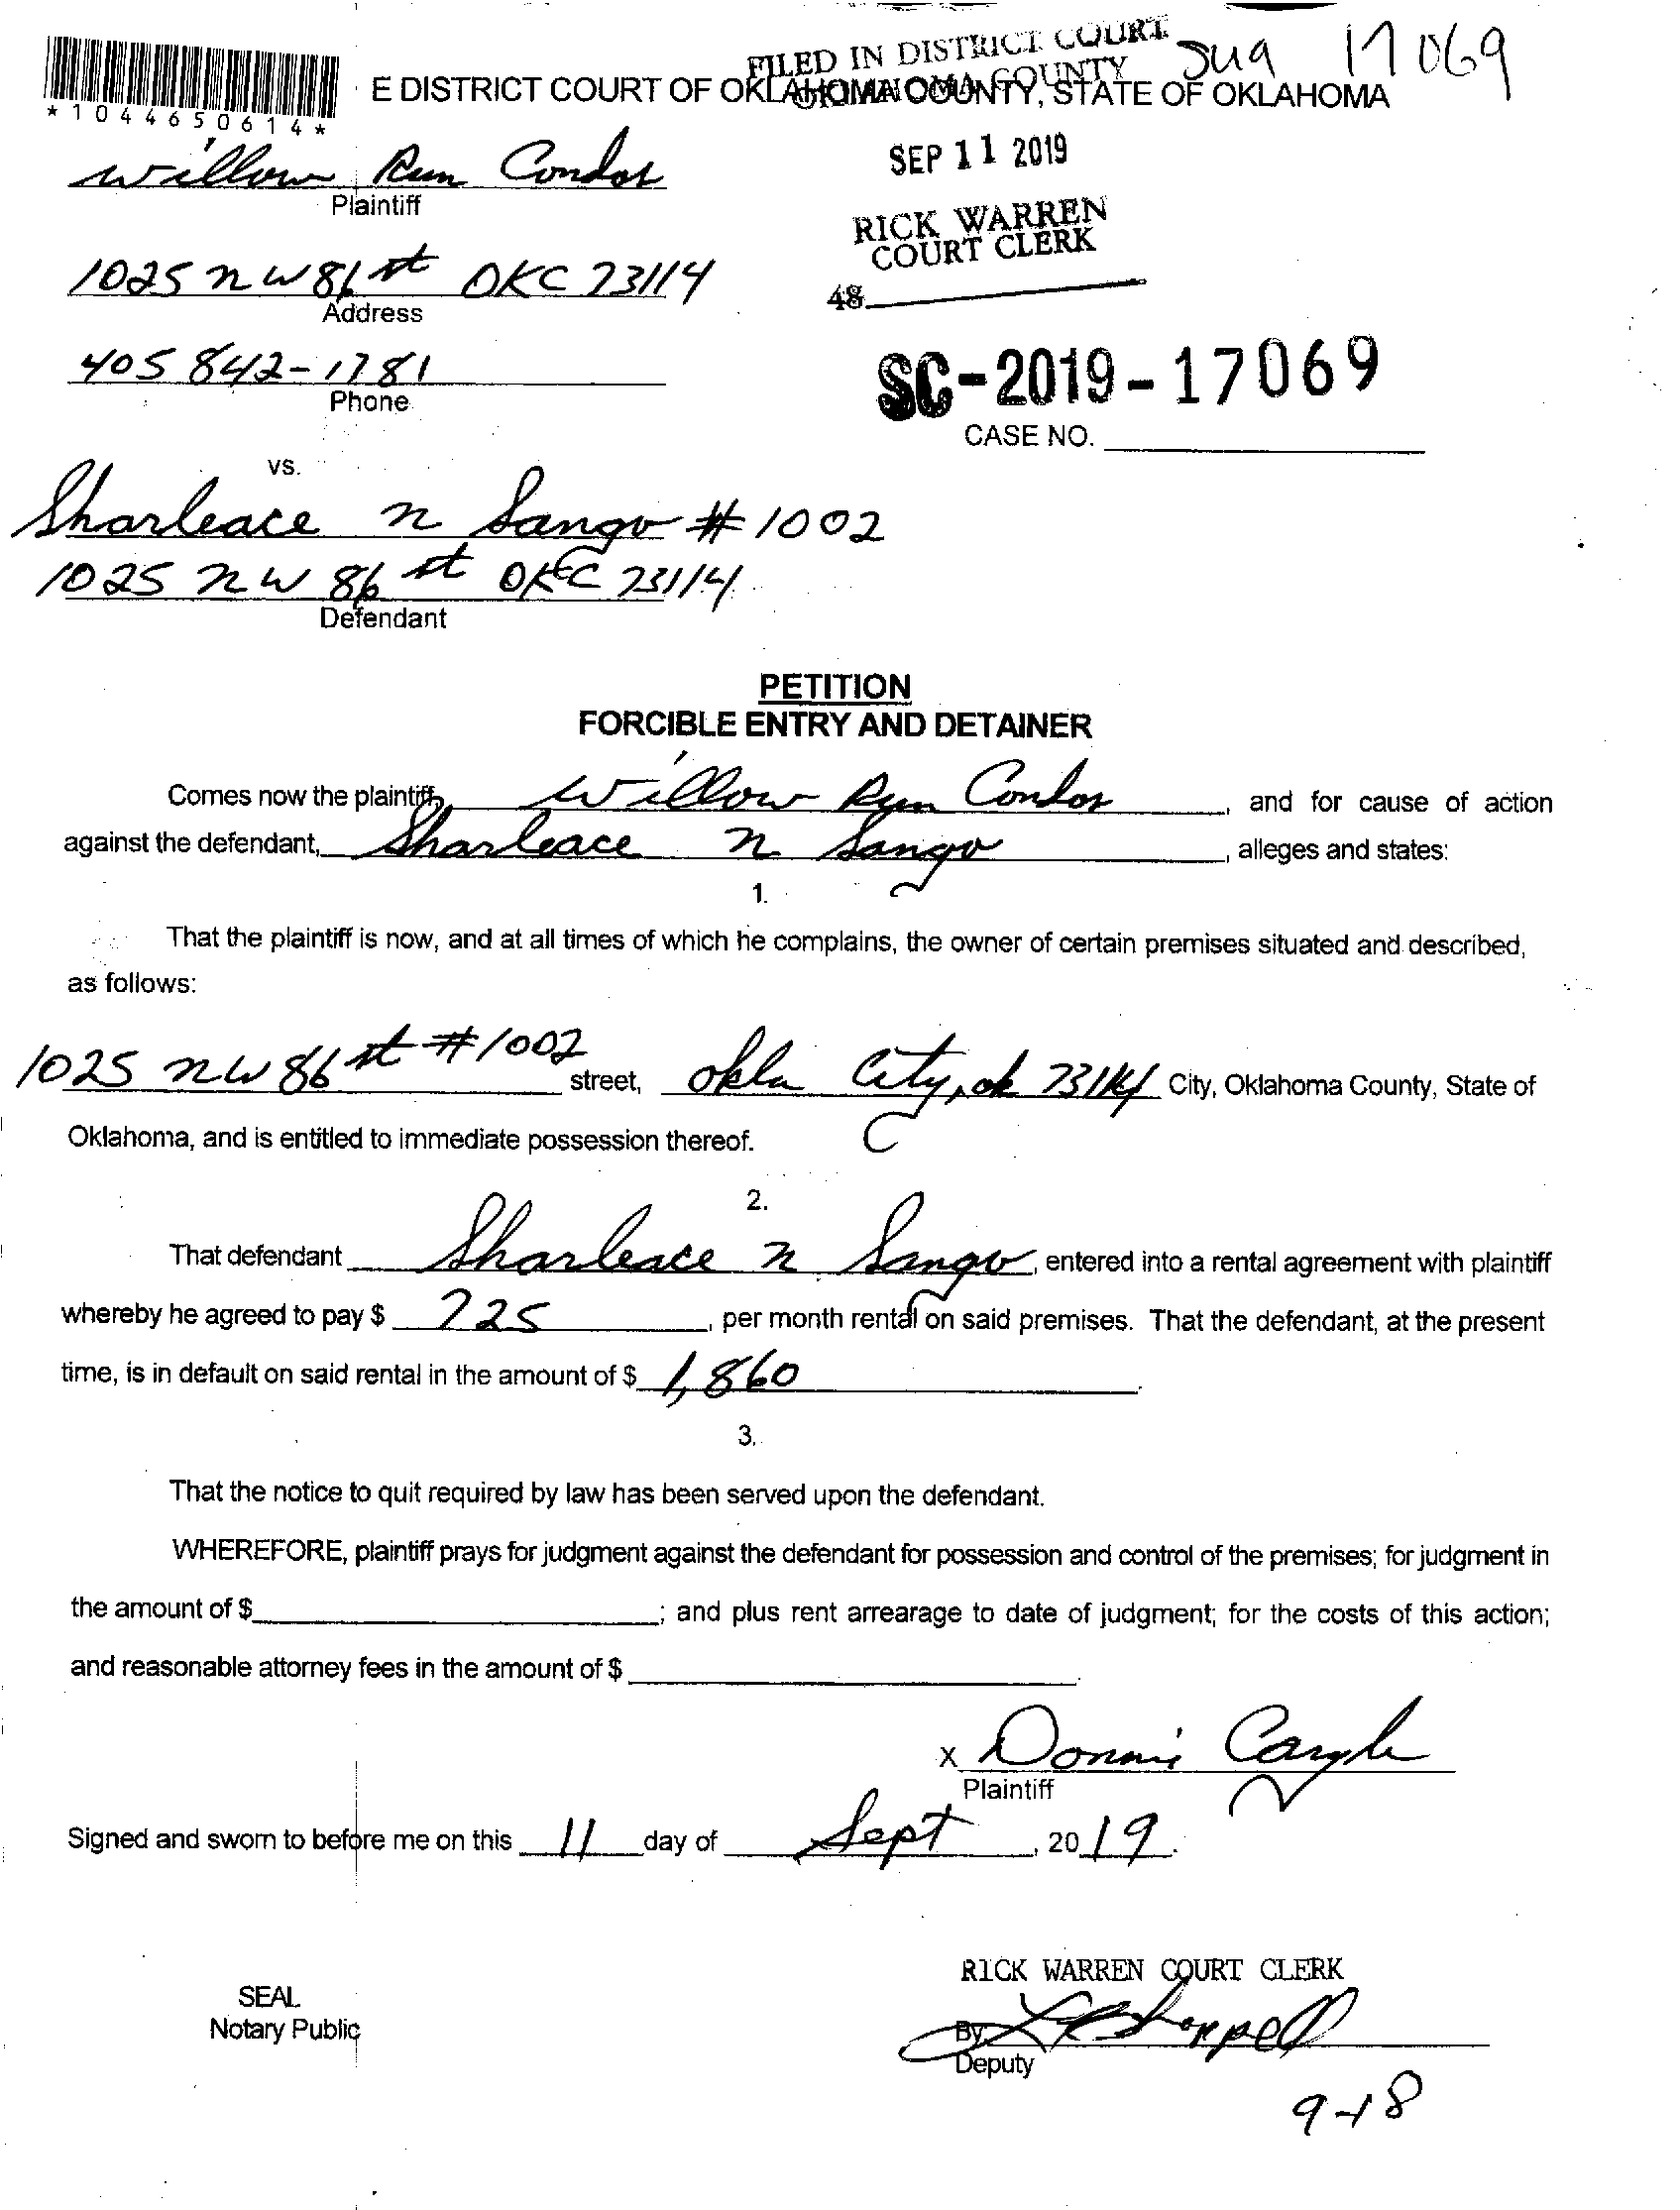 FILED IN DISTRICT COURT
OKLAHOMA COUNTY
Sua 17069
E DISTRICT COURT OF OKLAHOMA COUNTY, STATE OF OKLAHOMA
*1044650614*
SEP 11 2019
Willow Run Condos
Plaintiff
RICK WARREN
COURT CLERK
1025 NW 86 st OKC 73114
Address
48
405 842-1781
Phone
SC-2019-17069
CASE NO.
vs.
Sharleace N Sango #1002
1025 NW 86 st OKC 73114
Defendant
PETITION
FORCIBLE ENTRY AND DETAINER
Comes now the plaintiff, Willow Run Condos, and for cause of action
against the defendant, Sharleace N Sango, alleges and states:
1.
That the plaintiff is now, and at all times of which he complains, the owner of certain premises situated and described,
as follows:
1025 NW 86 st #1002 street, Okla City, ok 73114 City, Oklahoma County, State of
Oklahoma, and is entitled to immediate possession thereof.
2.
That defendant Sharleace N Sango, entered into a rental agreement with plaintiff
whereby he agreed to pay $ 725, per month rental on said premises. That the defendant, at the present
time, is in default on said rental in the amount of $ 1,860.
3.
That the notice to quit required by law has been served upon the defendant.
WHEREFORE, plaintiff prays for judgment against the defendant for possession and control of the premises; for judgment in
the amount of $; and plus rent arrearage to date of judgment; for the costs of this action;
and reasonable attorney fees in the amount of $.
x Donnie
Plaintiff
Signed and sworn to before me on this 11 day of Sept, 2019.
RICK WARREN COURT CLERK
SEAL
Notary Public
By
Deputy
9-18